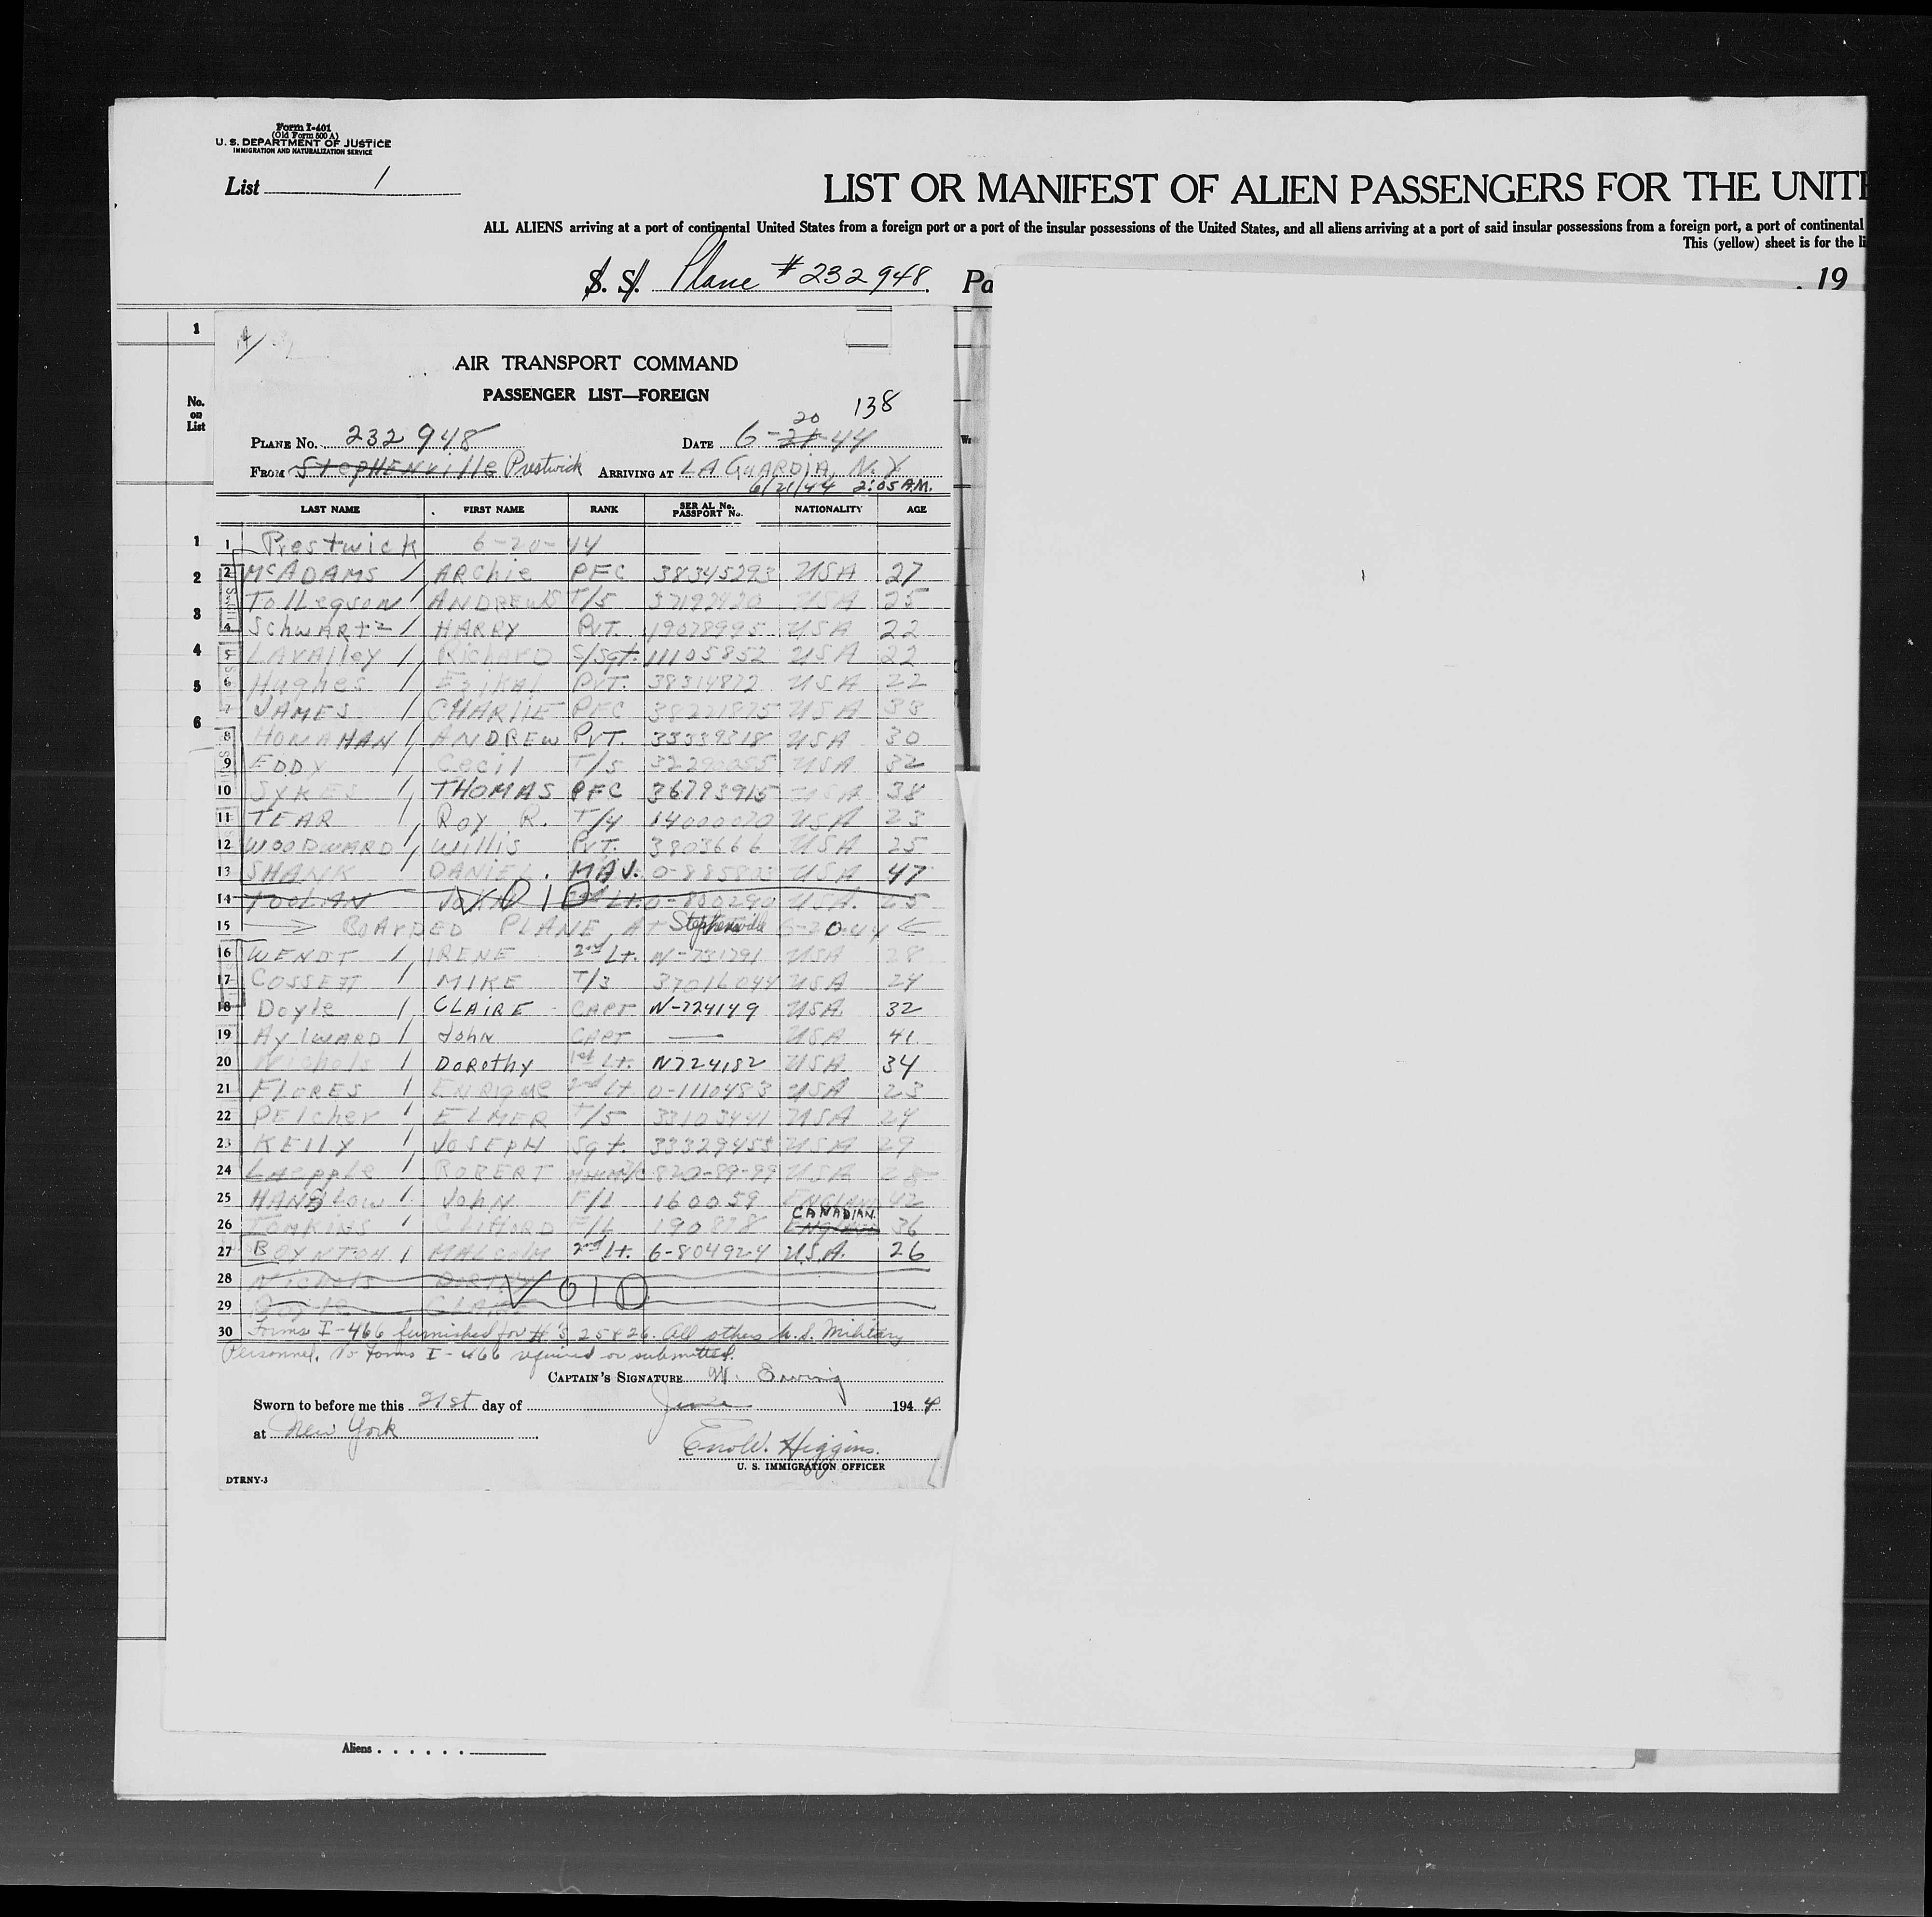 Form I-401
(Old Form 500 A)
U. S. DEPARTMENT OF JUSTICE
IMMIGRATION AND NATURALIZATION SERVICE
List 1
LIST OR MANIFEST OF ALIEN PASSENGERS FOR THE UNITE
ALL ALIENS arriving at a port of continental United States from a foreign port or a port of the insular possessions of the United States, and all aliens arriving at a port of said insular possessions from a foreign port, a port of continental
This (yellow) sheet is for the li
S. S. Plane #232948 Pa , 19
1
No. on List
1
2
3
4
5
6
AIR TRANSPORT COMMAND
PASSENGER LIST—FOREIGN
138
PLANE NO. 232948 DATE 6-21-44 20
FROM Stephenville Prestwick ARRIVING AT LA GUARDIA, N.Y
6/21/44 2:05 A.M.
LAST NAME FIRST NAME RANK SERIAL No. PASSPORT No. NATIONALITY AGE
1 Prestwick 6-20-44
2 McADAMS ARChie PFC 38345293 USA 27
Tollegson ANDREW T/5 37192420 USA 25
4 SchwARtz HARRY PVT. 19078995 USA 22
LAVAlley RichARD S/Sgt. 11105852 USA 22
6 Hughes PVT. 38314872 USA 22
7 JAMES CHARLIE PFC 38221875 USA 38
8 HONAHAN ANDREW PVT. 33339318 USA 30
9 EDDY Cecil T/5 32290055 USA 32
10 SYKES THOMAS PFC 36793915 USA 38
11 TEAR ROY R. T/4 14000070 USA 23
12 WOODWARD Willis PVT. 3803666 USA 25
13 SHANK DANIEL MAJ. 0-885803 USA 47
14 TOOLAN JOHN VOID Lt. 0-830290 USA. 25
15 BOARDED PLANE At Stephenville 6-20-44
16 WENDT IRENE 2nd Lt. N-731791 USA 28
17 COSSETT MIKE T/3 37016044 USA 24
18 Doyle CLAIRE CAPT N-724149 USA 32
19 AylWARD John CAPT — USA 41
20 Nichols DOROthy 1st Lt. N724182 USA 34
21 FLORES ENRIQUE 2nd Lt 0-1110483 USA 23
22 PElcher ELMER T/5 33103441 USA 24
23 KElly JOSEPH Sgt. 33329453 USA 29
24 LAepple ROBERT USA
25 HANSLOW JOhN F/L 160059 ENGLAND 42
26 TOMKINS CliffORD F/L 190878 CANADIAN 36
27 BOYNTON MALCOLM 2nd Lt. 6-804924 U.S.A. 26
28 Nichols VOID
29 Doyle CLAIRE
30 Forms I-466 furnished for #'s 25 & 26. All others U.S. Military
Personnel. No Forms I-466 required or submitted.
CAPTAIN'S SIGNATURE W.
Sworn to before me this 21st day of June 194 4
at New York
Higgins.
U. S. IMMIGRATION OFFICER
DTRNY-3
Aliens . . . . . .